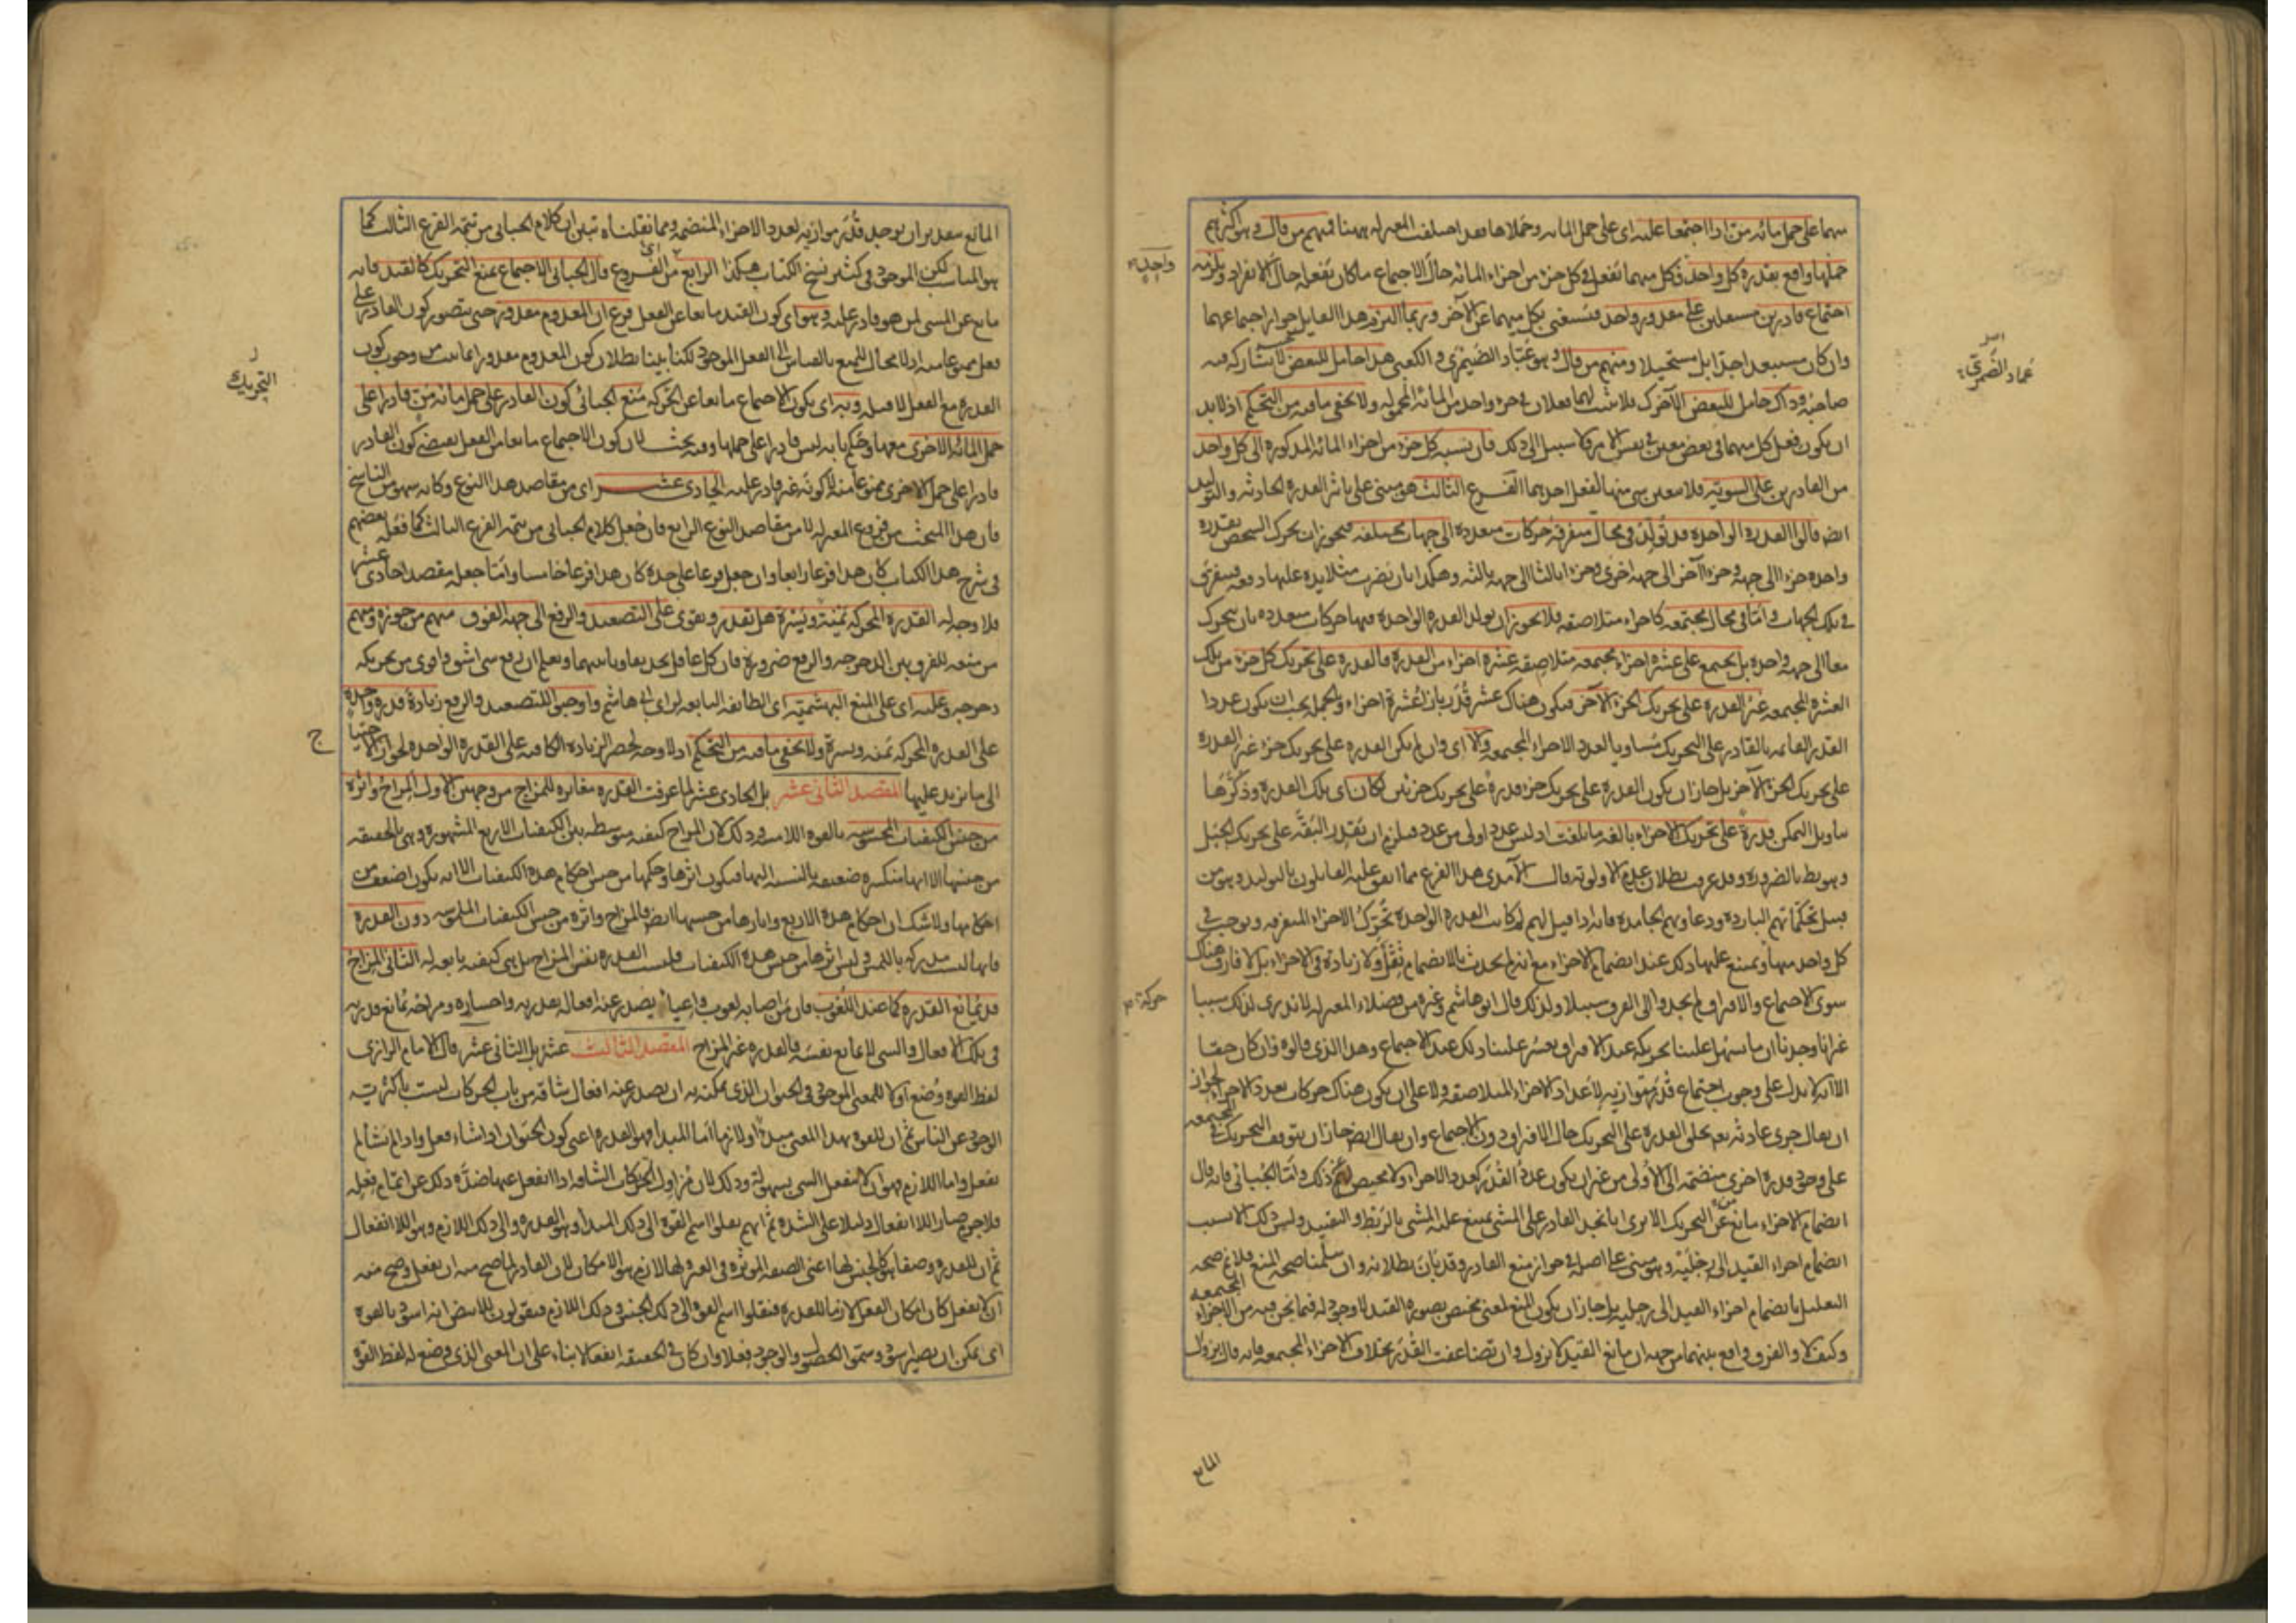 منهما على حمل مائة منّ اذا اجتمعا عليه اى على حمل المائة وحملاها فقد اختلف المعتزلة ههنا فمنهم من قال وهو اكثرهم
حملها واقع بقدرة كل واحد فكل منهما يفعل فى كل جزء من اجزاء المائة حال الاجتماع ما كان يفعله حال الانفراد ويلزمه
اجتماع قادرين مستقلين على مقدور واحد فيستغنى بكل منهما عن الآخر وربما التزم هذا القايل جواز اجتماعهما
وان كان مستبعدا جدّا بل مستحيلا ومنهم من قال وهو عبّاد الضيمرى والكعبى هذا حامل للبعض لا يشاركه فيه
صاحبه وذاك حامل للبعض الآخر كذلك فلا يثبت لهما فعلان فى جزء واحد من المائة المحمولة ولا يخفى ما فيه من التحكم اذ لا بد
ان يكون فعل كل منهما فى بعض معين فى نفس الامر ولا سبيل الى ذلك فان نسبة كل جزء من اجزاء المائة المذكورة الى كل واحد
من القادرين على السوية فلا معين شى منها لفعل احدهما الفرع الثالث هو مبنى على تاثير القدرة الحادثة والتوليد
ايضا قالوا القدرة الواحدة قد تولد فى محال متفرقة حركات متعددة الى جهات مختلفة فيجوز ان يحرك الشخص بقدرة
واحدة جزءا الى جهة وجزءا آخر الى جهة اخرى وجزءا ثالثا الى جهة ثالثة وهكذا بان يضرب مثلا يده عليها دفعة فيتفرق
فى تلك الجهات واما فى محال مجتمعة كاجزاء متلاصقة فلا يجوز ان يولد القدرة الواحدة فيها حركات متعددة بان يتحرك
معا الى جهة واحدة بل يجتمع على عشرة اجزاء مجتمعة متلاصقة عشرة اجزاء من القدرة فالقدرة على تحريك كل جزء من تلك
العشرة المجتمعة غير القدرة على تحريك الجزء الآخر فيكون هناك عشر قُدَر بازاء عشرة اجزاء وبالجملة يجب ان يكون عدد
القدر القائمة بالقادر على التحريك مساويا لعدد الاجزاء المجتمعة والا اى وان لم يكن القدرة على تحريك جزء غير القدرة
على تحريك الجزء الآخر بل جاز ان يكون القدرة على تحريك جزء قدرة على تحريك جزئين لكان اى تلك القدرة وذكّرها
بتاويل التمكن قدرة على تحريك الاجزاء بالغة ما بلغت اذ ليس عدد اولى من عدد فيلزم ان تقدر البقّة على تحريك الجبل
وهو بط بالضرورة وقد عرفت بطلان عدم الاولوية قال الآمدى هذا الفرع مما اتفق عليه القايلون بالتوليد وهو من
قبيل تحكّماتهم الباردة ودعاويهم الجامدة فانه اذا قيل لهم لم كانت القدرة الواحدة تحرّك الاجزاء المتفرقة ويوجب فى
كل واحد منها ويمتنع عليها ذلك عند انضمام الاجزاء مع انه لم يحدث بالانضمام ثقل ولا زيادة فى الاجزاء بل لا فارق هناك
سوى الاجتماع والافتراق لم يجدوا الى الفرق سبيلا ولذلك قال ابو هاشم وغيره من فضلاء المعتزلة لا ندرى لذلك سببا
غير انا وجدنا ان ما يسهل علينا تحريكه عند الافتراق يعسر علينا ذلك عند الاجتماع وهذا الذى قالوه وان كان حقا
الا انه لا يدل على وجوب اجتماع قدر موازية لاعداد الاجزاء المتلاصقة ولا على ان يكون هناك حركات بعدد الاجزاء لجواز
ان يقال جرى عادته تعالى بخلق القدرة على التحريك حال الافتراق دون الاجتماع وان يقال ايضا جاز ان يتوقف التحريك فى المجتمعة
على وجود قدرة اخرى منضمة الى الاولى من غير ان يكون عدد القُدَر كعدد الاجزاء ولا محيص عن ذلك واما الجُبائى فانه قال
انضمام الاجزاء مانع من التحريك الا ترى انا نجد القادر على المشى يمتنع عليه المشى بالربط والتقييد وليس ذلك الا بسبب
انضمام اجزاء القيد الى رجليه وهو مبنى على اصله فى جواز منع القادر وقد بان بطلانه وان سلّمنا صحة المنع فلا نم صحة
التعليل بانضمام اجزاء القيد الى رجليه بل جاز ان يكون المنع لمعنى يختص بصورة القيد لا وجود له فيما نحن فيه من الاجزاء المجتمعة
وكيف لا والفرق واقع بينهما من جهة ان مانع القيد لا يزول وان تضاعفت القُدَر بخلاف الاجزاء المجتمعة فانه قال يزول
المانع
واحد
عباد الضيمرى
حركة
المانع بتقدير ان يوجد قُدَر موازية لعدد الاجزاء المنضمة ومما نقلناه تبين ان كلام الجبائى من تتمة الفرع الثالث كما
هو المناسب لكن الموجود فى كثير نسخ الكتاب هكذا الرابع من الفروع قال الجبائى الاجتماع يمنع التحريك كالقيد فانه
مانع عن المشى لمن هو قادر عليه وهو اى كون القيد مانعا عن الفعل فرع ان المعدوم مقدور حتى يتصور كون القادر على
فعل ممنوعا منه اذ لا مجال للمنع بالقياس الى الفعل الموجود لكنا بينا بطلان كون المعدوم مقدورا بما ثبت من وجوب كون
القدرة مع الفعل لا قبله وبه اى بكون الاجتماع مانعا عن الحركة منع الجبائى كون القادر على حمل مائة منّ قادرا على
حمل المائة الاخرى معها وحكم بانه ليس قادرا على حملها وفيه بحث لان كون الاجتماع مانعا من الفعل يقتضى كون القادر
قادرا على حمل الاخرى ممنوعا منه لا كونه غير قادر عليه الحادى عشر اى من مقاصد هذا النوع وكانه سهو من الناسخ
فان هذا المبحث من فروع المعتزلة لا من مقاصد النوع الرابع فان جُعل كلام الجبائى من تتمة الفرع الثالث كما فعله بعضهم
فى شرح هذا الكتاب كان هذا فرعا رابعا وان جعل فرعا على حدة كان هذا فرعا خامسا واما جعله مقصدا حادى عشر
فلا وجه له القدرة المحركة يمنة ويسرة هل تقدر وتقوى على التصعيد والرفع الى جهة الفوق منهم من جوّزه ومنهم
من منعه للفرق بين الدحرجة والرفع ضرورة فان كل عاقل يجد تفاوتا بينهما ويعلم ان رفع شى اشق واقوى من تحريكه
دحرجة وعليه اى على المنع البهشمية اى الطائفة التابعة لراى ابى هاشم واوجبوا للتصعيد والرفع زيادة قدرة واحدة
على القدرة المحركة يمنة ويسرة ولا يخفى ما فيه من التحكم اذ لا وجه لحصر الزيادة الكافية على القدرة الواحدة لجواز الاحتياج
الى ما يزيد عليها المقصد الثانى عشر بل الحادى عشر لما عرفت القدرة مغايرة للمزاج من وجهين الاول المزاج واثره
من جنس الكيفيات المحسوسة بالقوة اللامسة وذلك لان المزاج كيفية متوسطة بين الكيفيات الاربع المشهورة وهى بالحقيقة
من جنسها الا انها منكسرة ضعيفة بالنسبة اليها فيكون اثرها وحكمها من جنس احكام هذه الكيفيات الا انه يكون اضعف من
احكامها ولا شك ان احكام هذه الاربع واثارها من جنسها ايضا فالمزاج واثره من جنس الكيفيات الملموسة دون القدرة
فانها ليست مدركة باللمس وليس اثرها من جنس هذه الكيفيات فليست القدرة نفس المزاج بل هى كيفية تابعة له الثانى المزاج
قد يمانع القدرة كما عند اللغوب فان من اصابه لغوب واعياء يصدر عنه افعال بقدرته واختياره ومزاجه يمانع قدرته
فى تلك الافعال والشى لا يمانع نفسه فالقدرة غير المزاج المقصد الثالث عشر بل الثانى عشر قال الامام الرازى
لفظ القوة وُضع اولا للمعنى الموجود فى الحيوان الذى يمكنه به ان يصدر عنه افعال شاقة من باب الحركات ليست باكثرية
الوجود عن الناس ثم ان للقوة بهذا المعنى مبدأ ولازما اما المبدأ فهو القدرة اعنى كون الحيوان اذا شاء فعل واذا لم يشأ لم
يفعل واما اللازم فهو ان لا ينفعل الشى بسهولة وذلك لان مُزاول الحركات الشاقة اذا انفعل عنها صدّه ذلك عن اتمام فعله
فلا جرم صار اللاانفعال دليلا على الشدة ثم انهم نقلوا اسم القوة الى ذلك المبدأ وهو القدرة والى ذلك اللازم وهو اللاانفعال
ثم ان للقدرة وصفا هو كالجنس لها اعنى الصفة الموثرة فى الغير ولها لازم هو الامكان لان القادر لما صح منه ان يفعل وصح منه
ان لا يفعل كان امكان الفعل لازما للقدرة فنقلوا اسم القوة الى ذلك الجنس وذلك اللازم فيقولون للابيض انه اسود بالقوة
اى يمكن ان يصير اسود وسموا الحصول والوجود فعلا وان كان فى الحقيقة انفعالا بناء على ان المعنى الذى وضع له لفظ القوة
التحريك
ج